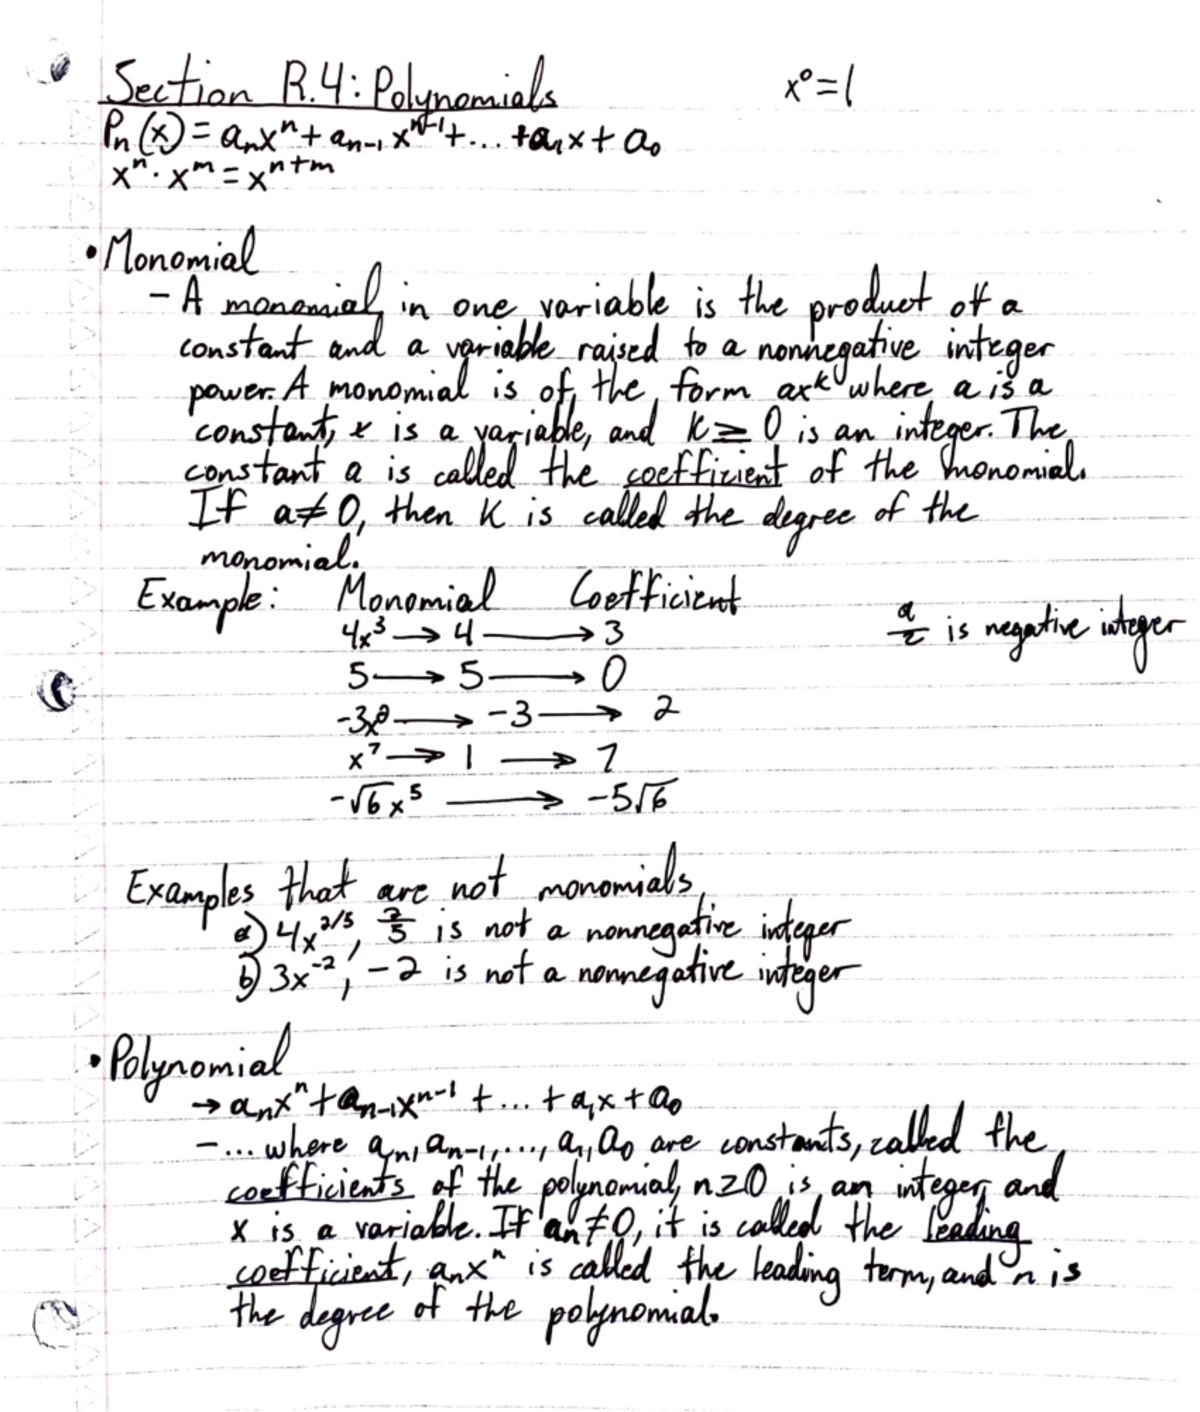 Section R.4: Polynomials
x⁰=1
Pₙ(x)=aₙxⁿ+aₙ₋₁xⁿ⁻¹+...+a₁x+a₀
xⁿ·xᵐ=xⁿ⁺ᵐ
•Monomial
-A monomial in one variable is the product of a
constant and a variable raised to a nonnegative integer
power. A monomial is of the form axᵏ where a is a
constant, x is a variable, and K≥0 is an integer. The
constant a is called the coefficient of the monomial.
If a≠0, then K is called the degree of the
monomial.
Example: Monomial Coefficient
4x³→4→3
is negative integer
5→5→0
-3x→-3→2
x⁷→1→7
-√6x⁵→-5√6
Examples that are not monomials,
a) 4x²/⁵, 2/5 is not a nonnegative integer
b) 3x⁻², -2 is not a nonnegative integer
•Polynomial
→aₙxⁿ+aₙ₋₁xⁿ⁻¹+...+a₁x+a₀
-...where aₙ, aₙ₋₁,..., a₁, a₀ are constants, called the
coefficients of the polynomial, n≥0 is an integer, and
x is a variable. If aₙ≠0, it is called the leading
coefficient, aₙxⁿ is called the leading term, and n is
the degree of the polynomial.